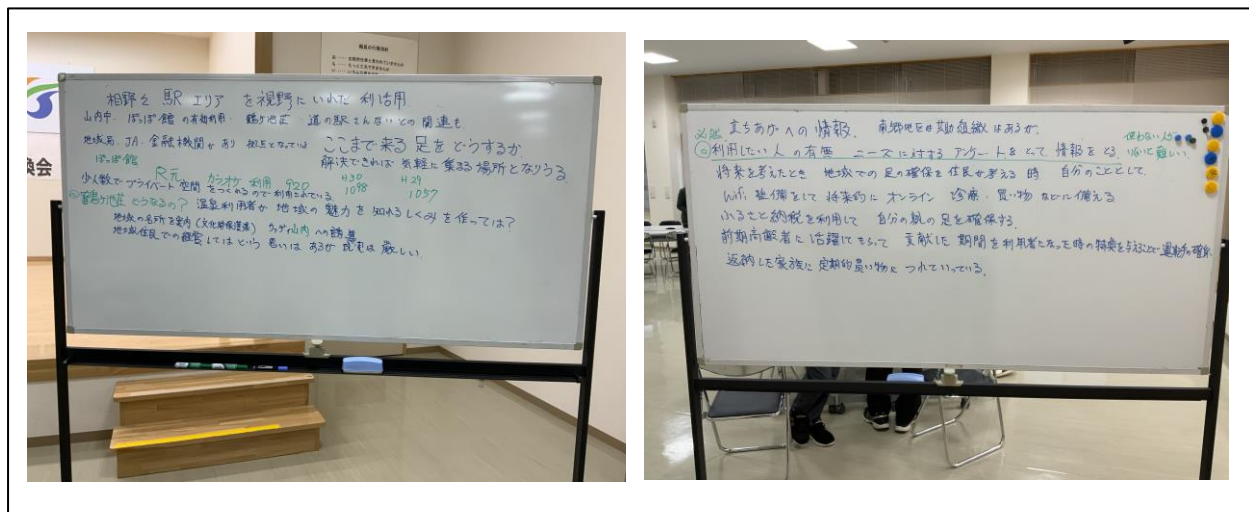 換会
職員の行動指針
相野々駅エリアを視野にいれた利活用
山内中、ぽっぽ館の有効利用、鶴ヶ池荘、道の駅さんないとの関連も、
地域局、JA、金融機関があり 拠点となっては ここまで来る足をどうするか、
解決できれば気軽に集まる場所となりうる
ぽっぽ館
R元 カラオケ利用 920 H30 1098 H29 1057
少人数でプライベート空間をつくれるので利用されている
鶴ヶ池荘どうなるの? 温泉利用者が地域の魅力を知れるしくみを作っては?
地域の名所を案内 山内への誘導
地域住民での経営してはという思いはあるが現実は厳しい。
立ちあがへの情報、南郷地区は共助組織はあるか、
使わない人が
いないと難しい。
◎利用したい人の有無 ニーズに対するアンケートをとって情報をとる、
将来を考えたとき 地域での足の確保を住民が考える時 自分のこととして、
Wifi整備をして将来的にオンライン診療・買い物などに備える
ふるさと納税を利用して 自分の親の足を確保する、
前期高齢者に活躍してもらって 貢献した期間を利用者になった時の特典を与えることで運転手の確保、
返納した家族に定期的買い物につれていっている。